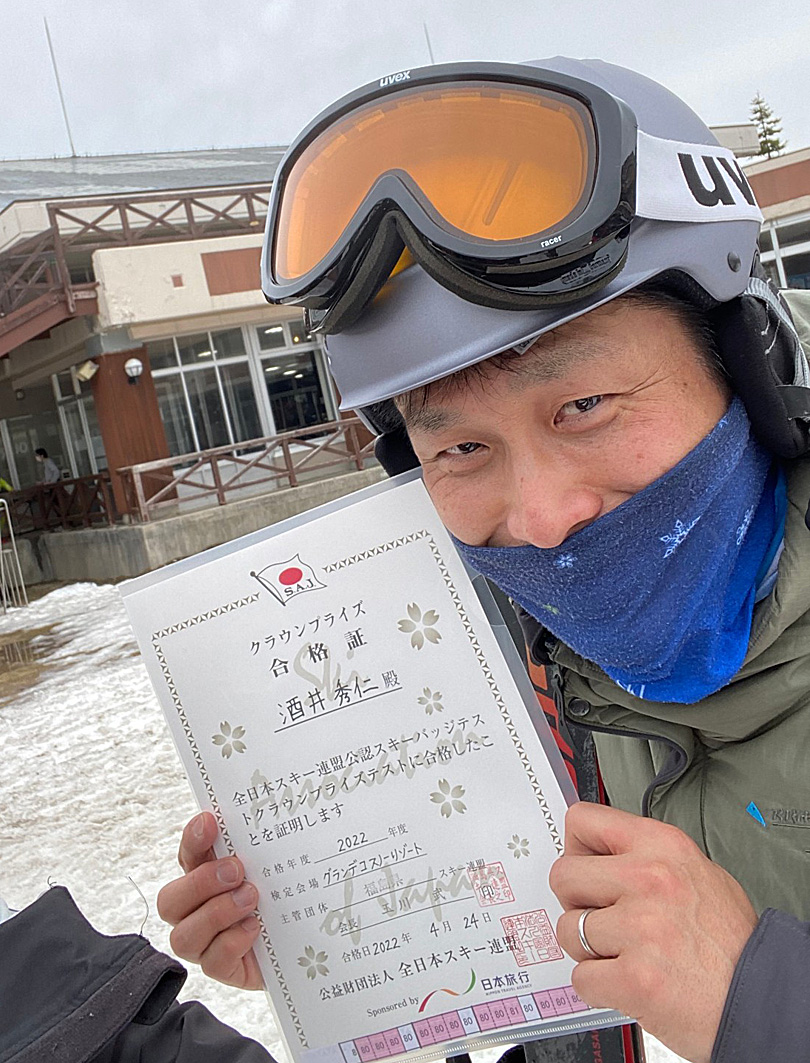 uvex
racer
uv
S.A.J
クラウンプライズ
合格証
Ski
酒井 秀仁 殿
全日本スキー連盟公認スキーバッジテス
トクラウンプライズテストに合格したこ
とを証明します
Association
合格年度 2022 年度
検定会場 グランデコスノーリゾート
主管団体 福島県 スキー連盟
会長 玉川 武 印
of Japan
合格日2022年 4月 24日
公益財団法人 全日本スキー連盟
Sponsored by 日本旅行
NIPPON TRAVEL AGENCY
8 80 80 80 80 80 80 80 81 80 80 80